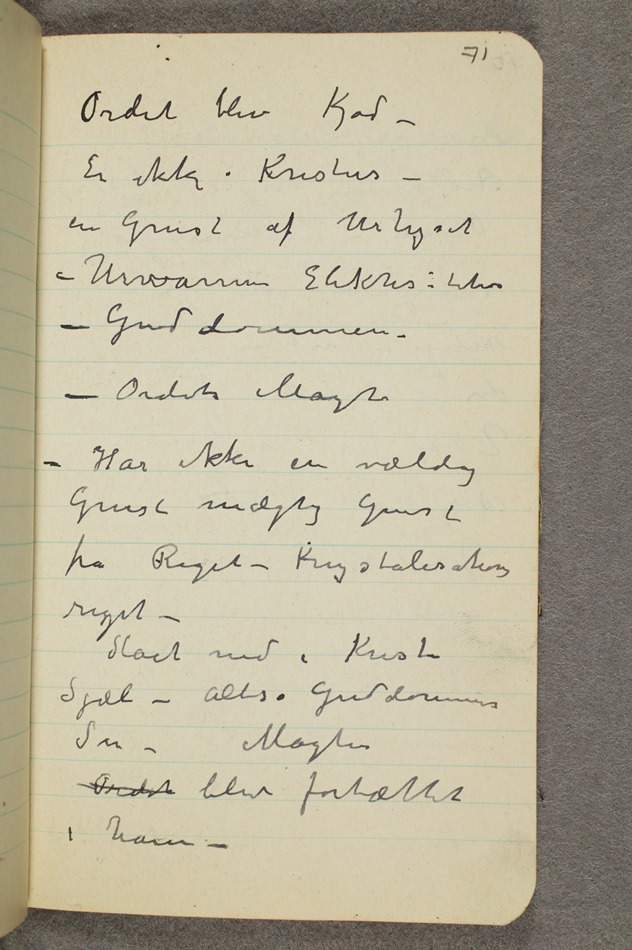 71
Ordet blev Kjød –
Er ikke i Kristus –
en Gnist af Urlyset
– Urvarmen Elektrisiteten
– Guddommen –
– Ordets Magt
– Har ikke en vældig
Gnist mægtig Gnist
fra Riget – Krystalisations
riget –
Slaet ned i Kristi
Sjæl – altså Guddommens
Søn – Magten
Ordet blev fortættet
i ham –